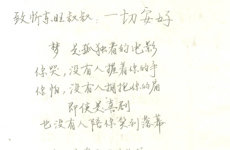 致忻东旺叔叔：一切安好
梦是孤独者的电影
你哭，没有人握着你的手
你怕，没有人拥抱你的肩
即使是喜剧
也没有人陪你笑到落幕